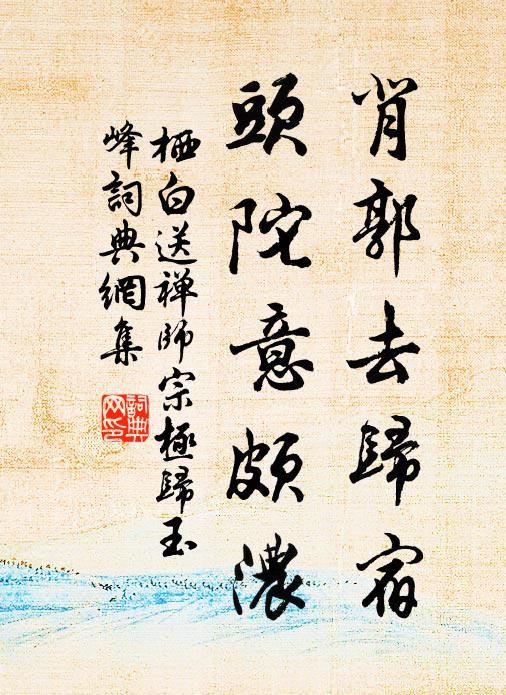 背郭去歸宿
頭陀意頗濃
栖白送禅師宗極歸玉
峰詞典網集
詞典
网印